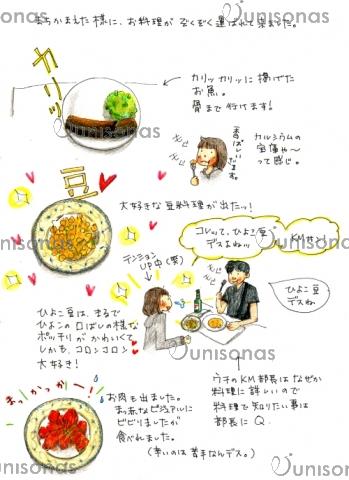 まちかまえた様に、お料理が ぞくぞく運ばれて来ました。
カリッ
カリッカリッに揚げた
お魚。
骨まで行けます!
香ばしい
カルシウムの
宝庫や〜
って感じ。
豆
大好きな豆料理が出たッ!
コレって、ひよこ豆
デスよねッ
KMせん!
テンション
UP中(笑)
ひよこ豆
デスね
ひよこ豆は、まるで
ひよこの口ばしの様な
ポッチリがかわいくて
しかも、コロンコロン
大好き!
ウチのKM部長はなぜか
料理に詳しいので
料理で知りたい事は
部長にQ.
まっかっかー
お肉も出ました。
まっ赤なビジュアルに
ビビりましたが
食べれました。
(辛いのは苦手なんデス。)
unisonas